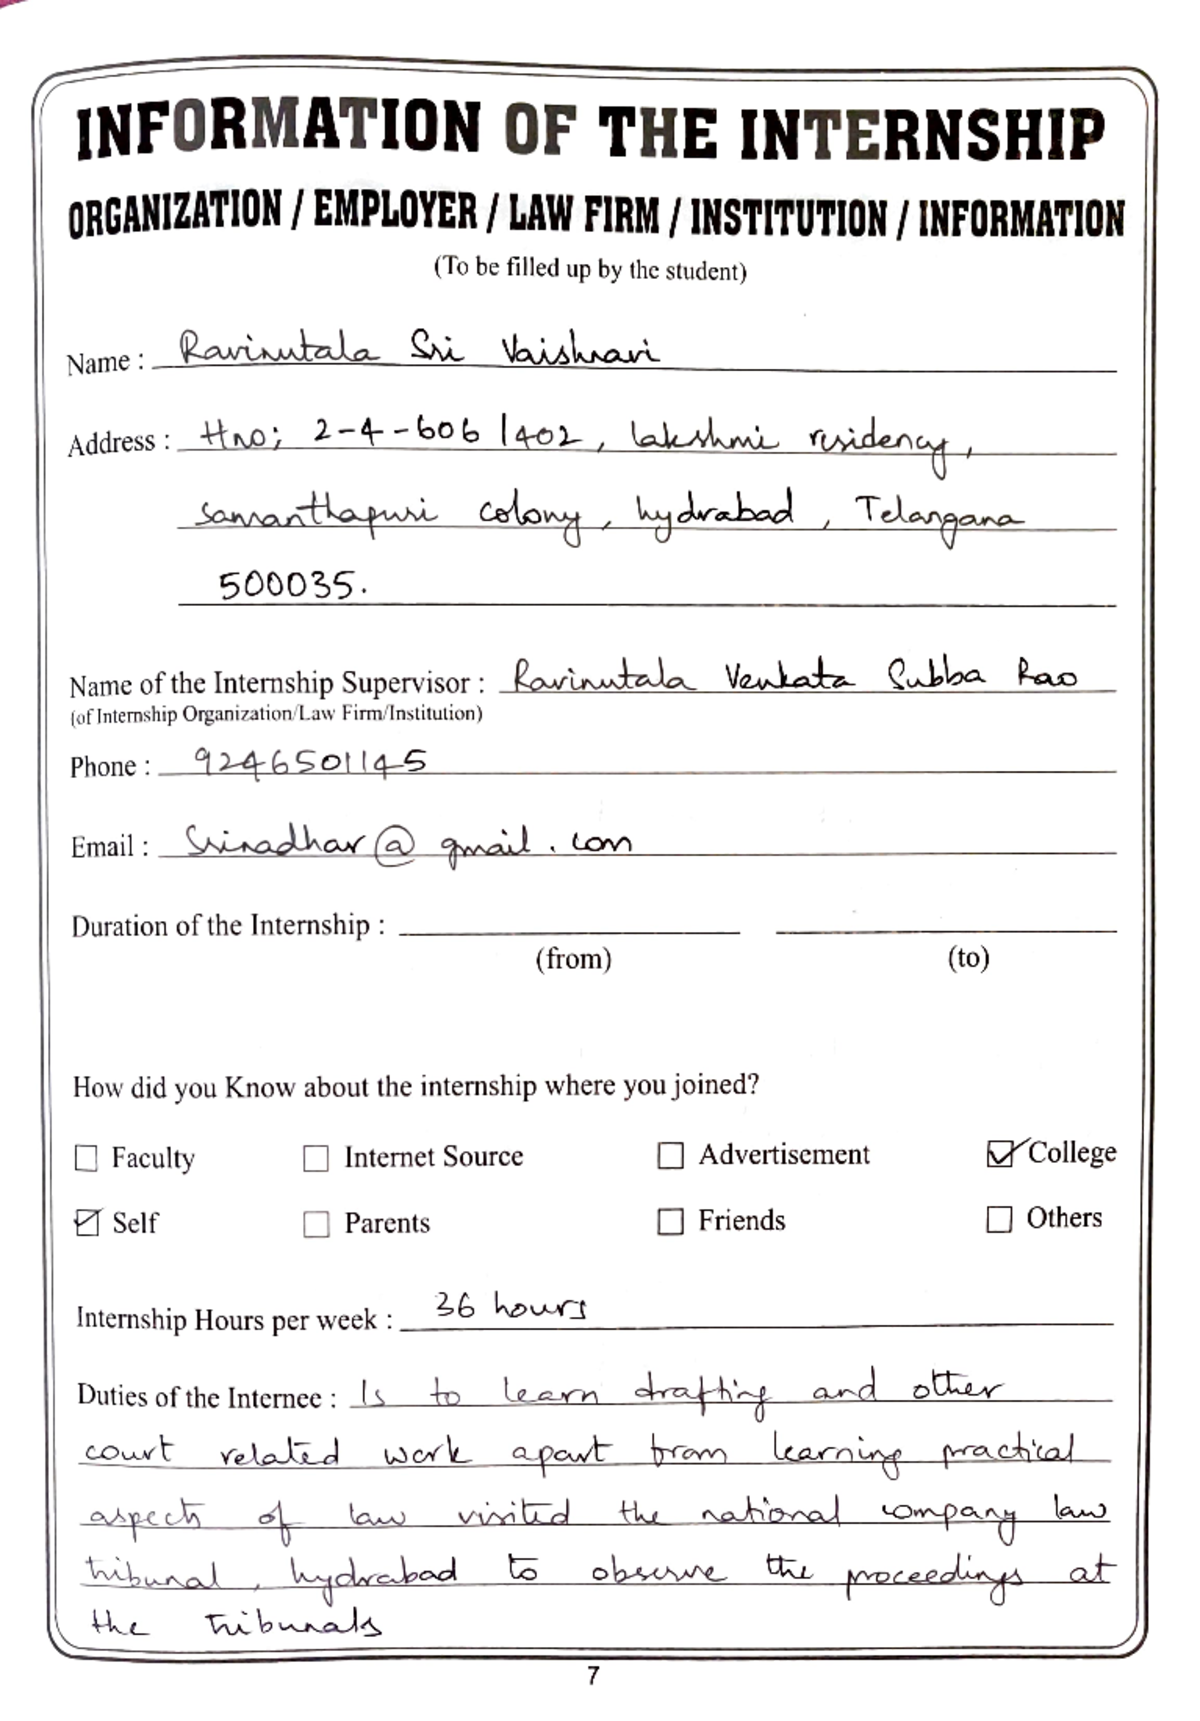 INFORMATION OF THE INTERNSHIP
ORGANIZATION / EMPLOYER / LAW FIRM / INSTITUTION / INFORMATION
(To be filled up by the student)
Name : Ravinutala Sri Vaishnavi
Address : Hno; 2-4-606/402, lakshmi residency,
samanthapuri colony, hydrabad, Telangana
500035.
Name of the Internship Supervisor : Ravinutala Venkata Subba Rao
(of Internship Organization/Law Firm/Institution)
Phone : 9246501145
Email : Srinadhar@gmail.com
Duration of the Internship :
(from) (to)
How did you Know about the internship where you joined?
☐ Faculty ☐ Internet Source ☐ Advertisement ☑ College
☑ Self ☐ Parents ☐ Friends ☐ Others
Internship Hours per week : 36 hours
Duties of the Internee : Is to learn drafting and other
court related work apart from learning practical
aspects of law visited the national company law
tribunal, hydrabad to observe the proceedings at
the tribunals
7